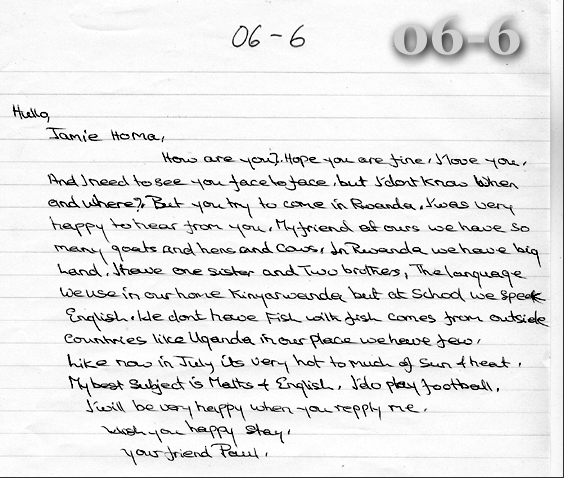 06-6
06-6
Hello,
Jamie Homa,
How are you?. Hope you are fine. I love you.
And I need to see you face to face, but I dont know when
and where?, But you try to come in Rwanda. I was very
happy to hear from you. My friend at ours we have so
many goats and hens and cows. In Rwanda we have big
land. I have one sister and Two brothers, The language
We use in our home Kinyarwanda but at School we speek
English. We dont have Fish wilk fish comes from outside
countries like Uganda in our place we have few.
Like now in July its very hot to much of sun & heat.
My best Subject is Maths & English. I do play football.
I will be very happy when you repply me.
Wish you happy stay.
your friend Paul.